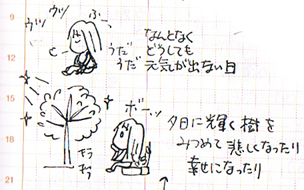 ウツ ウツ
ふー
うだ
うだ
なんとなく
どうしても
元気が出ない日
12
15
18
21
ボーッ
キラ
キラ
夕日に輝く樹を
みつめて悲しくなったり
幸せになったり